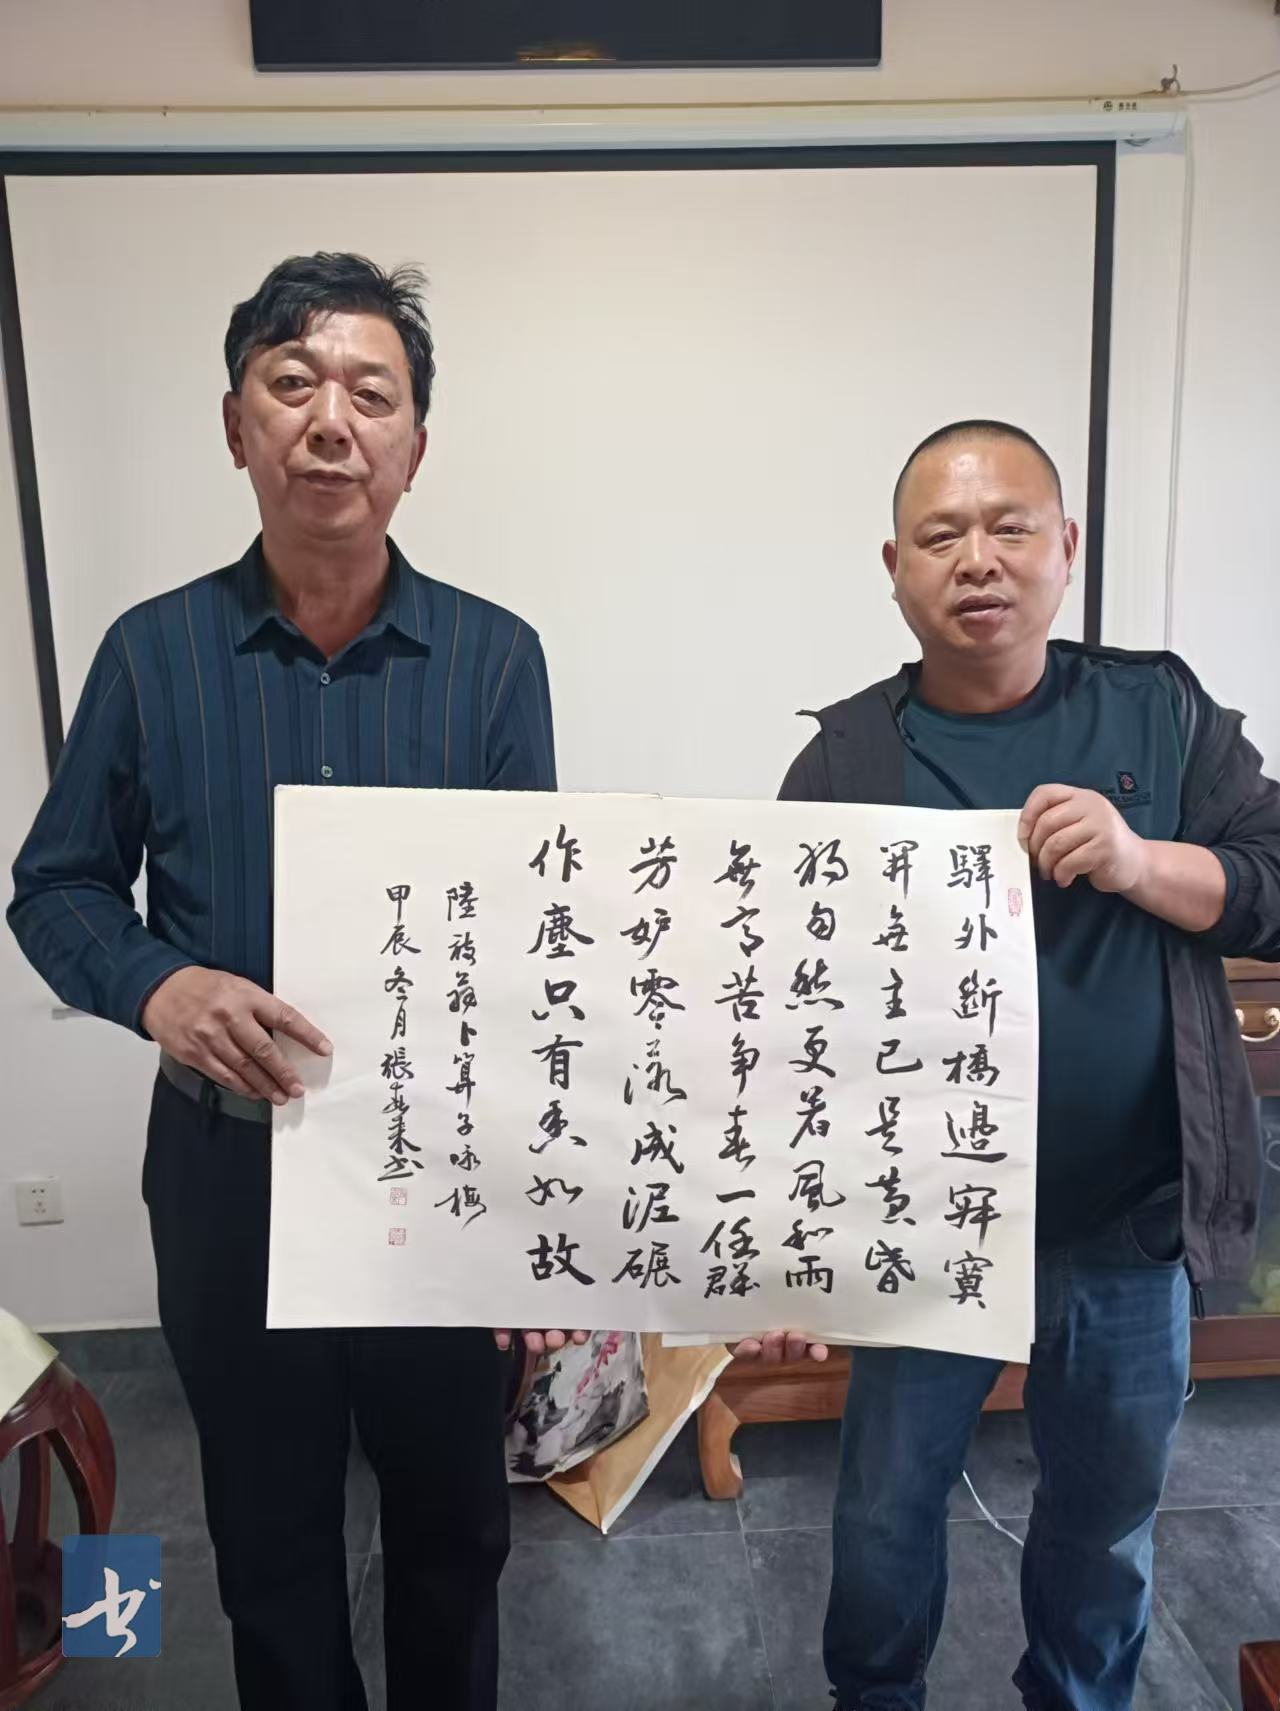 驛外斷橋邊寂寞
開無主已是黄昏
獨自愁更着風和雨
無意苦争春一任群
芳妒零落成泥碾
作塵只有香如故
陸放翁卜算子咏梅
甲辰冬月張春来书
书